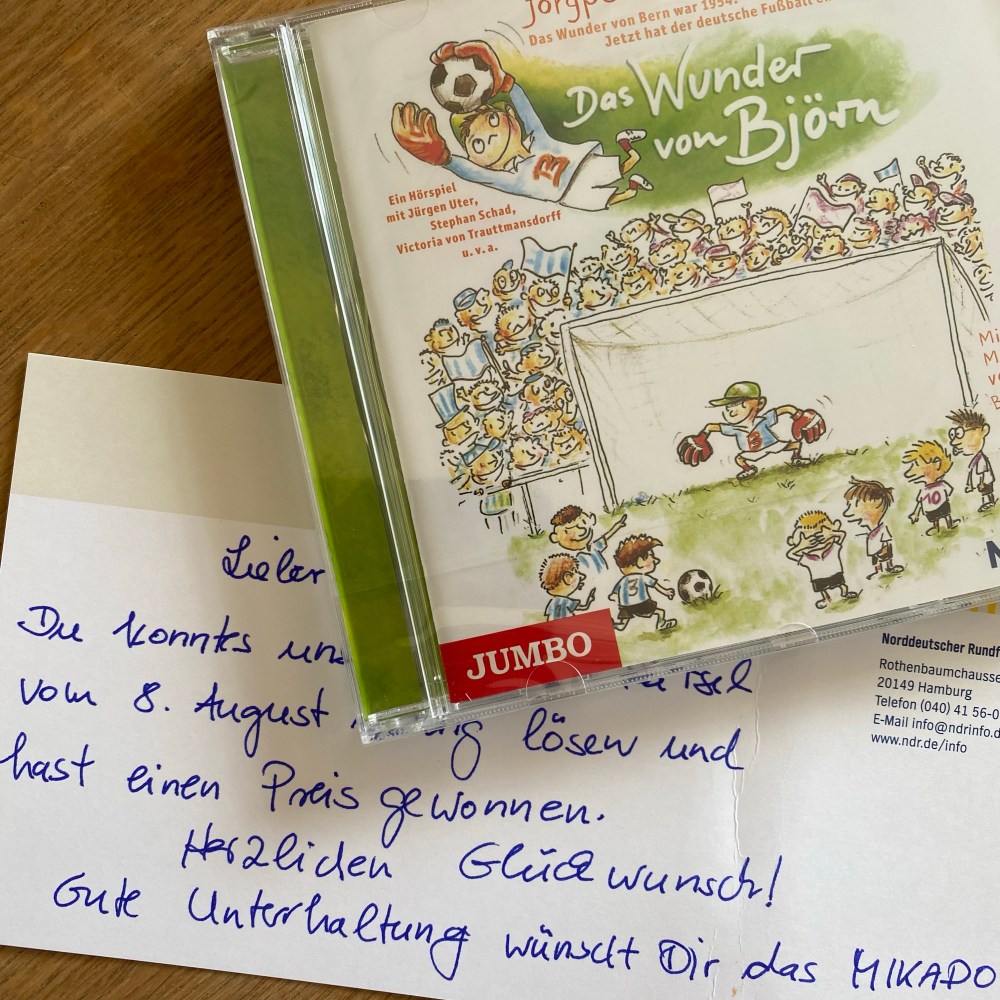 Das Wunder von Bern war 1954.
Jetzt hat der deutsche Fußball
Das Wunder
von Björn
Ein Hörspiel
mit Jürgen Uter,
Stephan Schad,
Victoria von Trauttmansdorff
u.v.a.
13
13
10
3
JUMBO
Norddeutscher
Rothenbaumchaussee
20149 Hamburg
Telefon (040) 41 56-0
E-Mail info@ndrinfo.d
www.ndr.de/info
Lieber
Du konntes
vom 8. August lösen und
hast einen Preis gewonnen.
Herzlichen Glückwunsch!
Gute Unterhaltung wünscht Dir das MIKADO